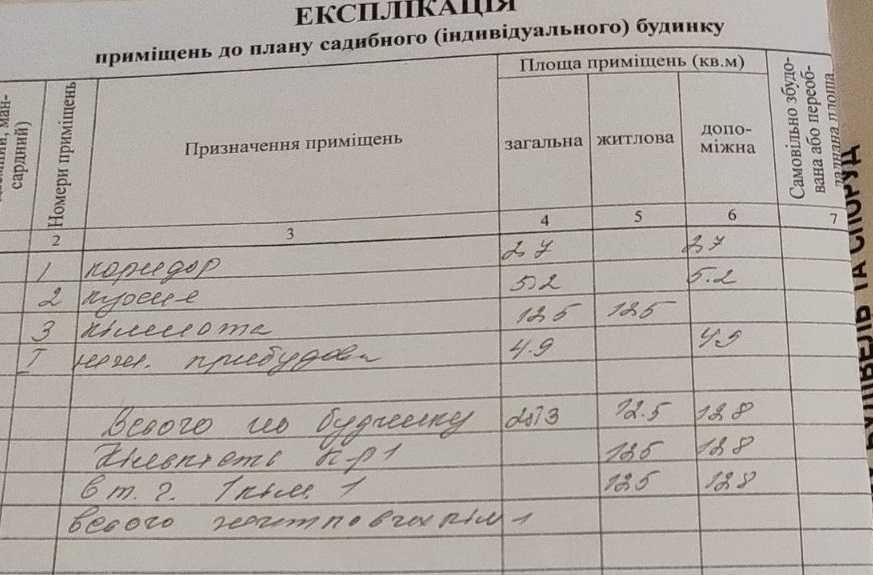 ЕКСПЛІКАЦІЯ
приміщень до плану садибного (індивідуального) будинку
сардний)
Номери приміщень
Призначення приміщень
Площа приміщень (кв.м)
загальна
житлова
допо-
міжна
Самовільно збудо-
вана або переоб-
ладнана площа
2 3 4 5 6 7
1 коридор 2.7 2.7
2 кухня 5.2 5.2
3 кімната 12.5 12.5
I прибудова 4.9 4.9
Всього по будинку 25.3 12.5 12.8
Кількість к-р 1 12.5 12.8
в т. ч. 1 кім. 1 12.5 12.8
всього житлових кім 1
БУДІВЕЛЬ ТА СПОРУД